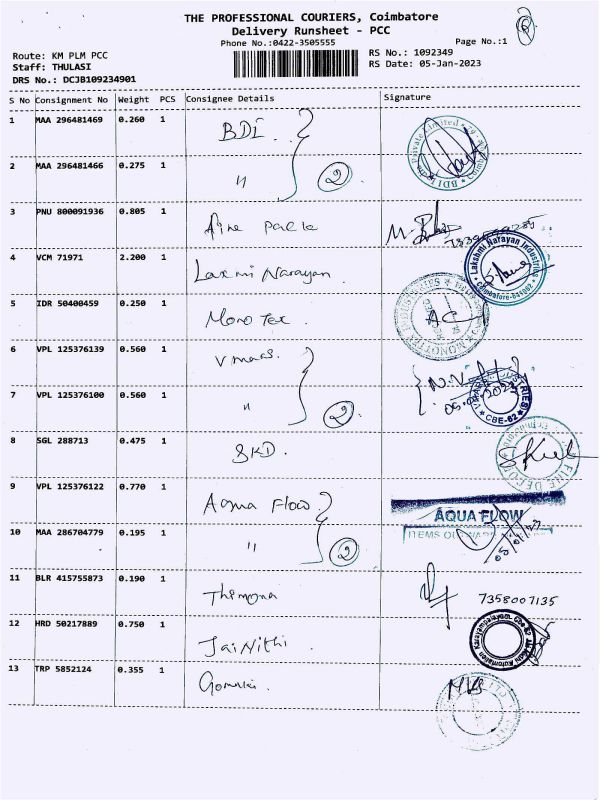 THE PROFESSIONAL COURIERS, Coimbatore
Delivery Runsheet - PCC
Phone No.:0422-3505555
Page No.:1
Route: KM PLM PCC
RS No.: 1092349
Staff: THULASI
RS Date: 05-Jan-2023
DRS No.: DCJB109234901
S No Consignment No Weight PCS Consignee Details Signature
1 MAA 296481469 0.260 1 BDI
2 MAA 296481466 0.275 1 " 2
3 PNU 800091936 0.805 1
4 VCM 71971 2.200 1 Laxmi Narayan Lakshmi Narayan Industries
5 IDR 50400459 0.250 1 Mono Tex AC
6 VPL 125376139 0.560 1
7 VPL 125376100 0.560 1 " 2 CBE-62
8 SGL 288713 0.475 1 SKD
9 VPL 125376122 0.770 1 Aqua Flow AQUA FLOW
10 MAA 286704779 0.195 1 " 2 05/01/23
11 BLR 415755873 0.190 1 Themona 7358007135
12 HRD 50217889 0.750 1 JaiNithi
13 TRP 5852124 0.355 1